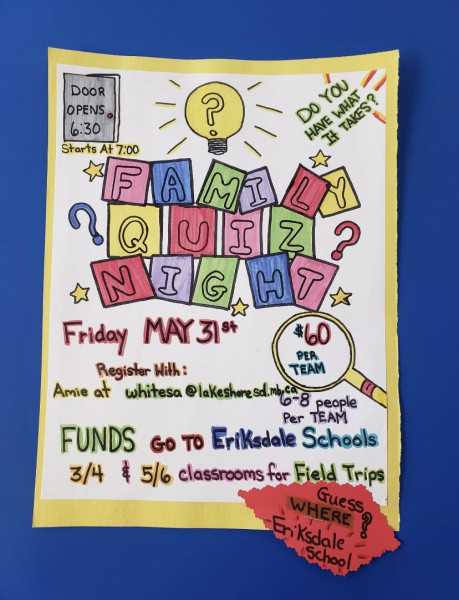 DOOR
OPENS
6:30
Starts At 7:00
?
DO YOU
HAVE WHAT
IT TAKES?
FAMILY
? QUIZ ?
NIGHT
Friday MAY 31st
$60
PER
TEAM
Register With:
Amie at whitesa@lakeshoresd.mb.ca
6-8 people
Per TEAM
FUNDS GO TO Eriksdale Schools
3/4 & 5/6 classrooms for Field Trips
Guess
WHERE?
Eriksdale
School